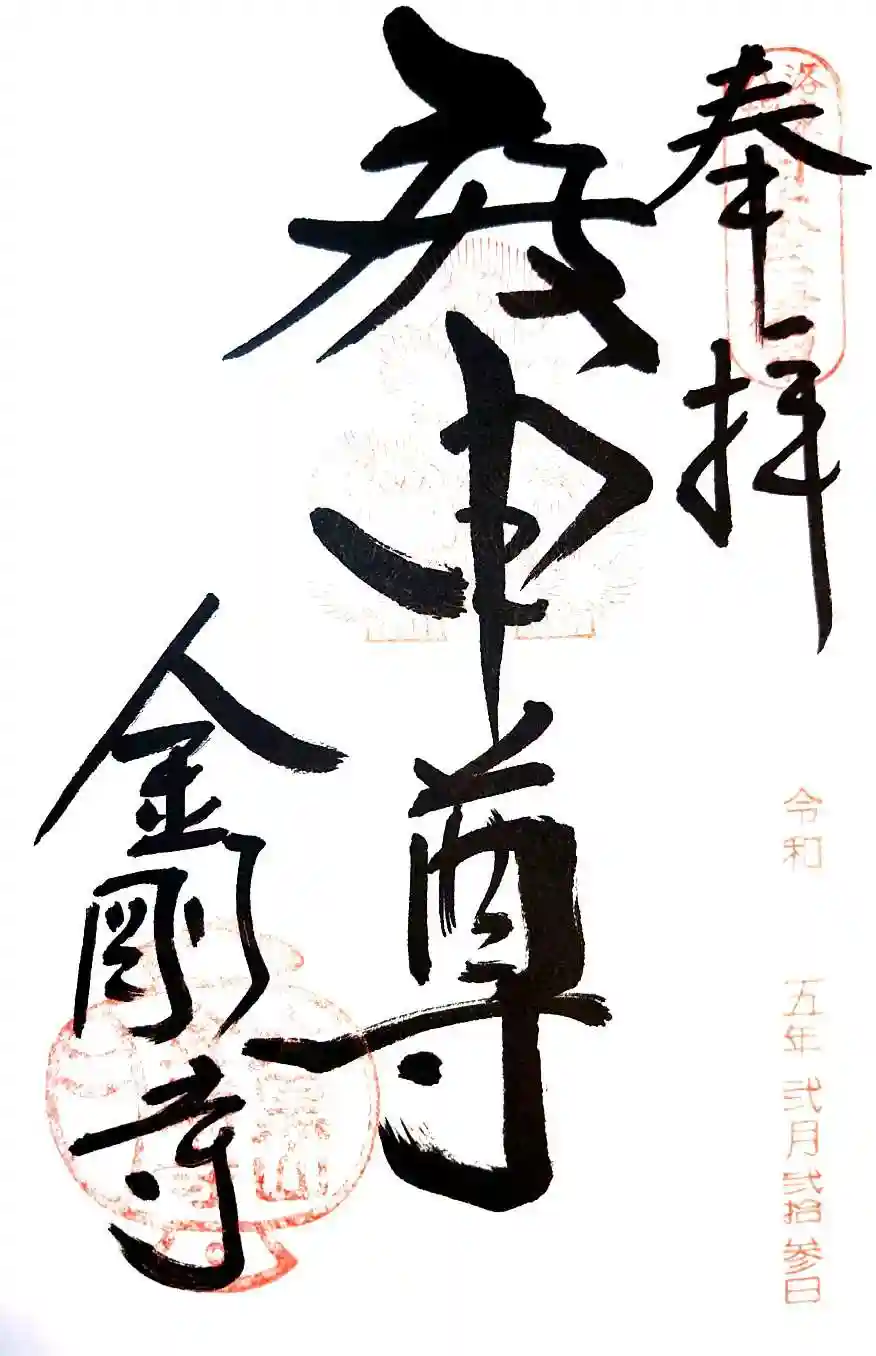 奉拝
令和 五年 弐月 弐拾 参日
庚申尊
金剛寺